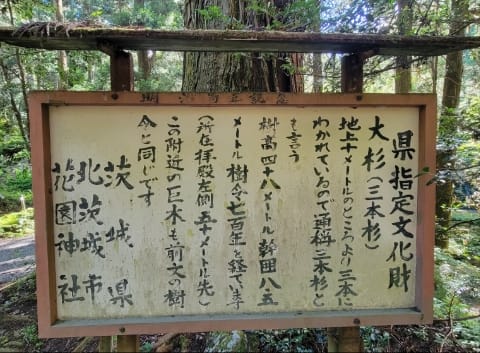 明治百年記念
県指定文化財
大杉(三本杉)
地上十メートルのところより三本に
わかれているので通称三本杉と
も言う
樹高四十八メートル幹囲八五
メートル樹令七百年を経ています
(所在拝殿左側五十メートル先)
この附近の巨木も前文の樹
令と同じです
茨城県
北茨城市
花園神社